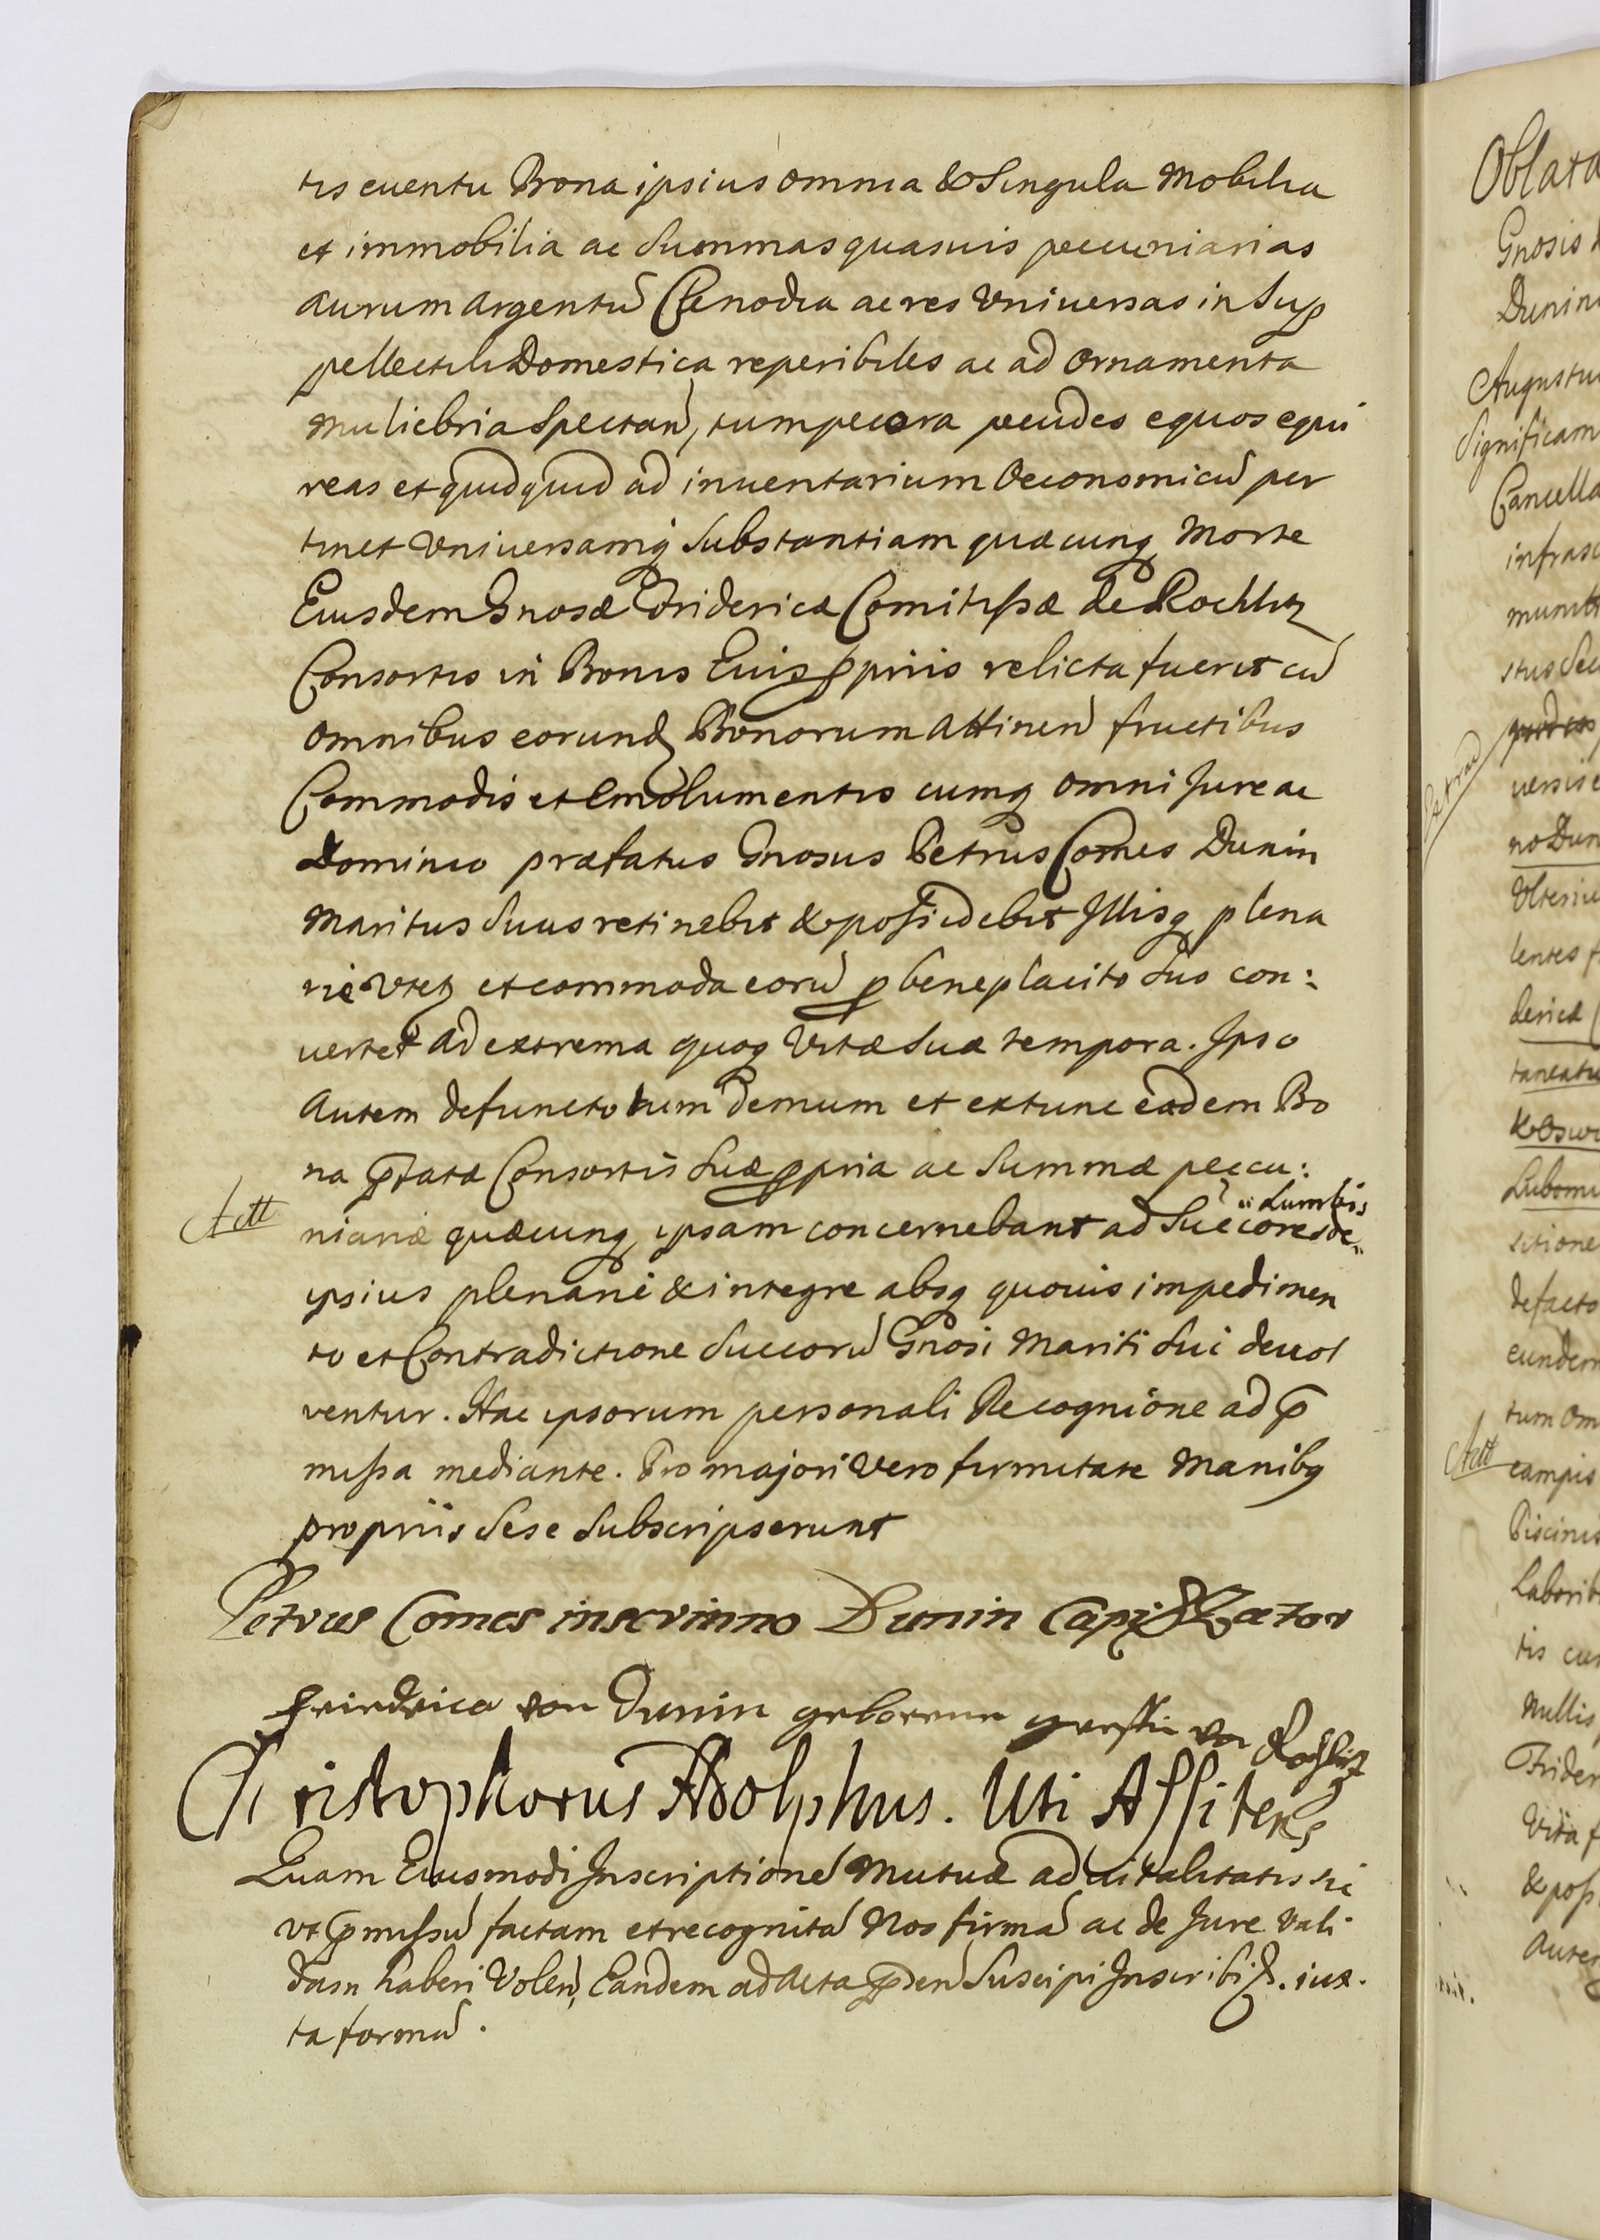 tis euentu Bona ipsius omnia & Singula Mobilia
et immobilia ac Summas quasuis pecuniarias
aurum argentũ Clenodia ac res Vniuersas in Sup
pellectili Domestica reperibiles ac ad Ornamenta
Muliebria Spectan, tum pecora pecudes equos equi
reas et quidquid ad inuentarium Oeconomicũ per
tinet Vniuersamq Substantiam quæcunq Morte
Eiusdem Gnosæ Fridericæ Comitissæ de Rochlitz
Consortis in Bonis Euis ppriis relicta fuerit cũ
omnibus eorund Bonorum Attinen fructibus
Commodis et Emolumentis cumq omni Jure ac
Dominio præfatus Gnosus Petrus Comes Dunin
Maritus Suus retinebit & possidebit Illisq plena
rie Vtetz et commoda eorũ p beneplacito Suo con:
uertet ad extrema quoq Vitæ Suæ tempora. Ipso
Autem defuncto tum demum et extunc eadem Bo
na pfatæ Consortis Suæ ppria ac Summæ peccu:
Actt
niariæ quæcunq ipsam concernebant ad Succores de
Lumbis
ipsius plenarie & integre absq quouis impedimen
to et Contradictione Succorũ Gnosi Mariti Sui deuol
ventur. Hac ipsorum personali Recognióne ad p
missa mediante. Pro majori Vero firmitate Manibq
propriis Sese Subscripserunt
Petrus Comes inscrinno Dunin Capi
Frirdrica von Dunin geborene greffin von Rochlitz
Christophorus Adolphus. Uti Assitens
Quam Eiusmodi Inscriptionẽ Mutuæ aduitalitatis sic
vt pmissũ factam et recognitã Nos firmã ac de Jure Vali
dam haberi Volen, Eandem ad Acta psen Suscipi Inscribi. iux.
ta formã.
Oblata
Gnosis
Dunin
Augustu
Significam
Cancella
infrasc
stus
uersis
no Dun
Vlteriu
lentes
dericæ
taneatu
Lubomi
sitione
defacto
eundem
tum Om
Actt
campis
Piscinis
Laborib
tis
Nullis
Frider
Vita
& poss
Autem